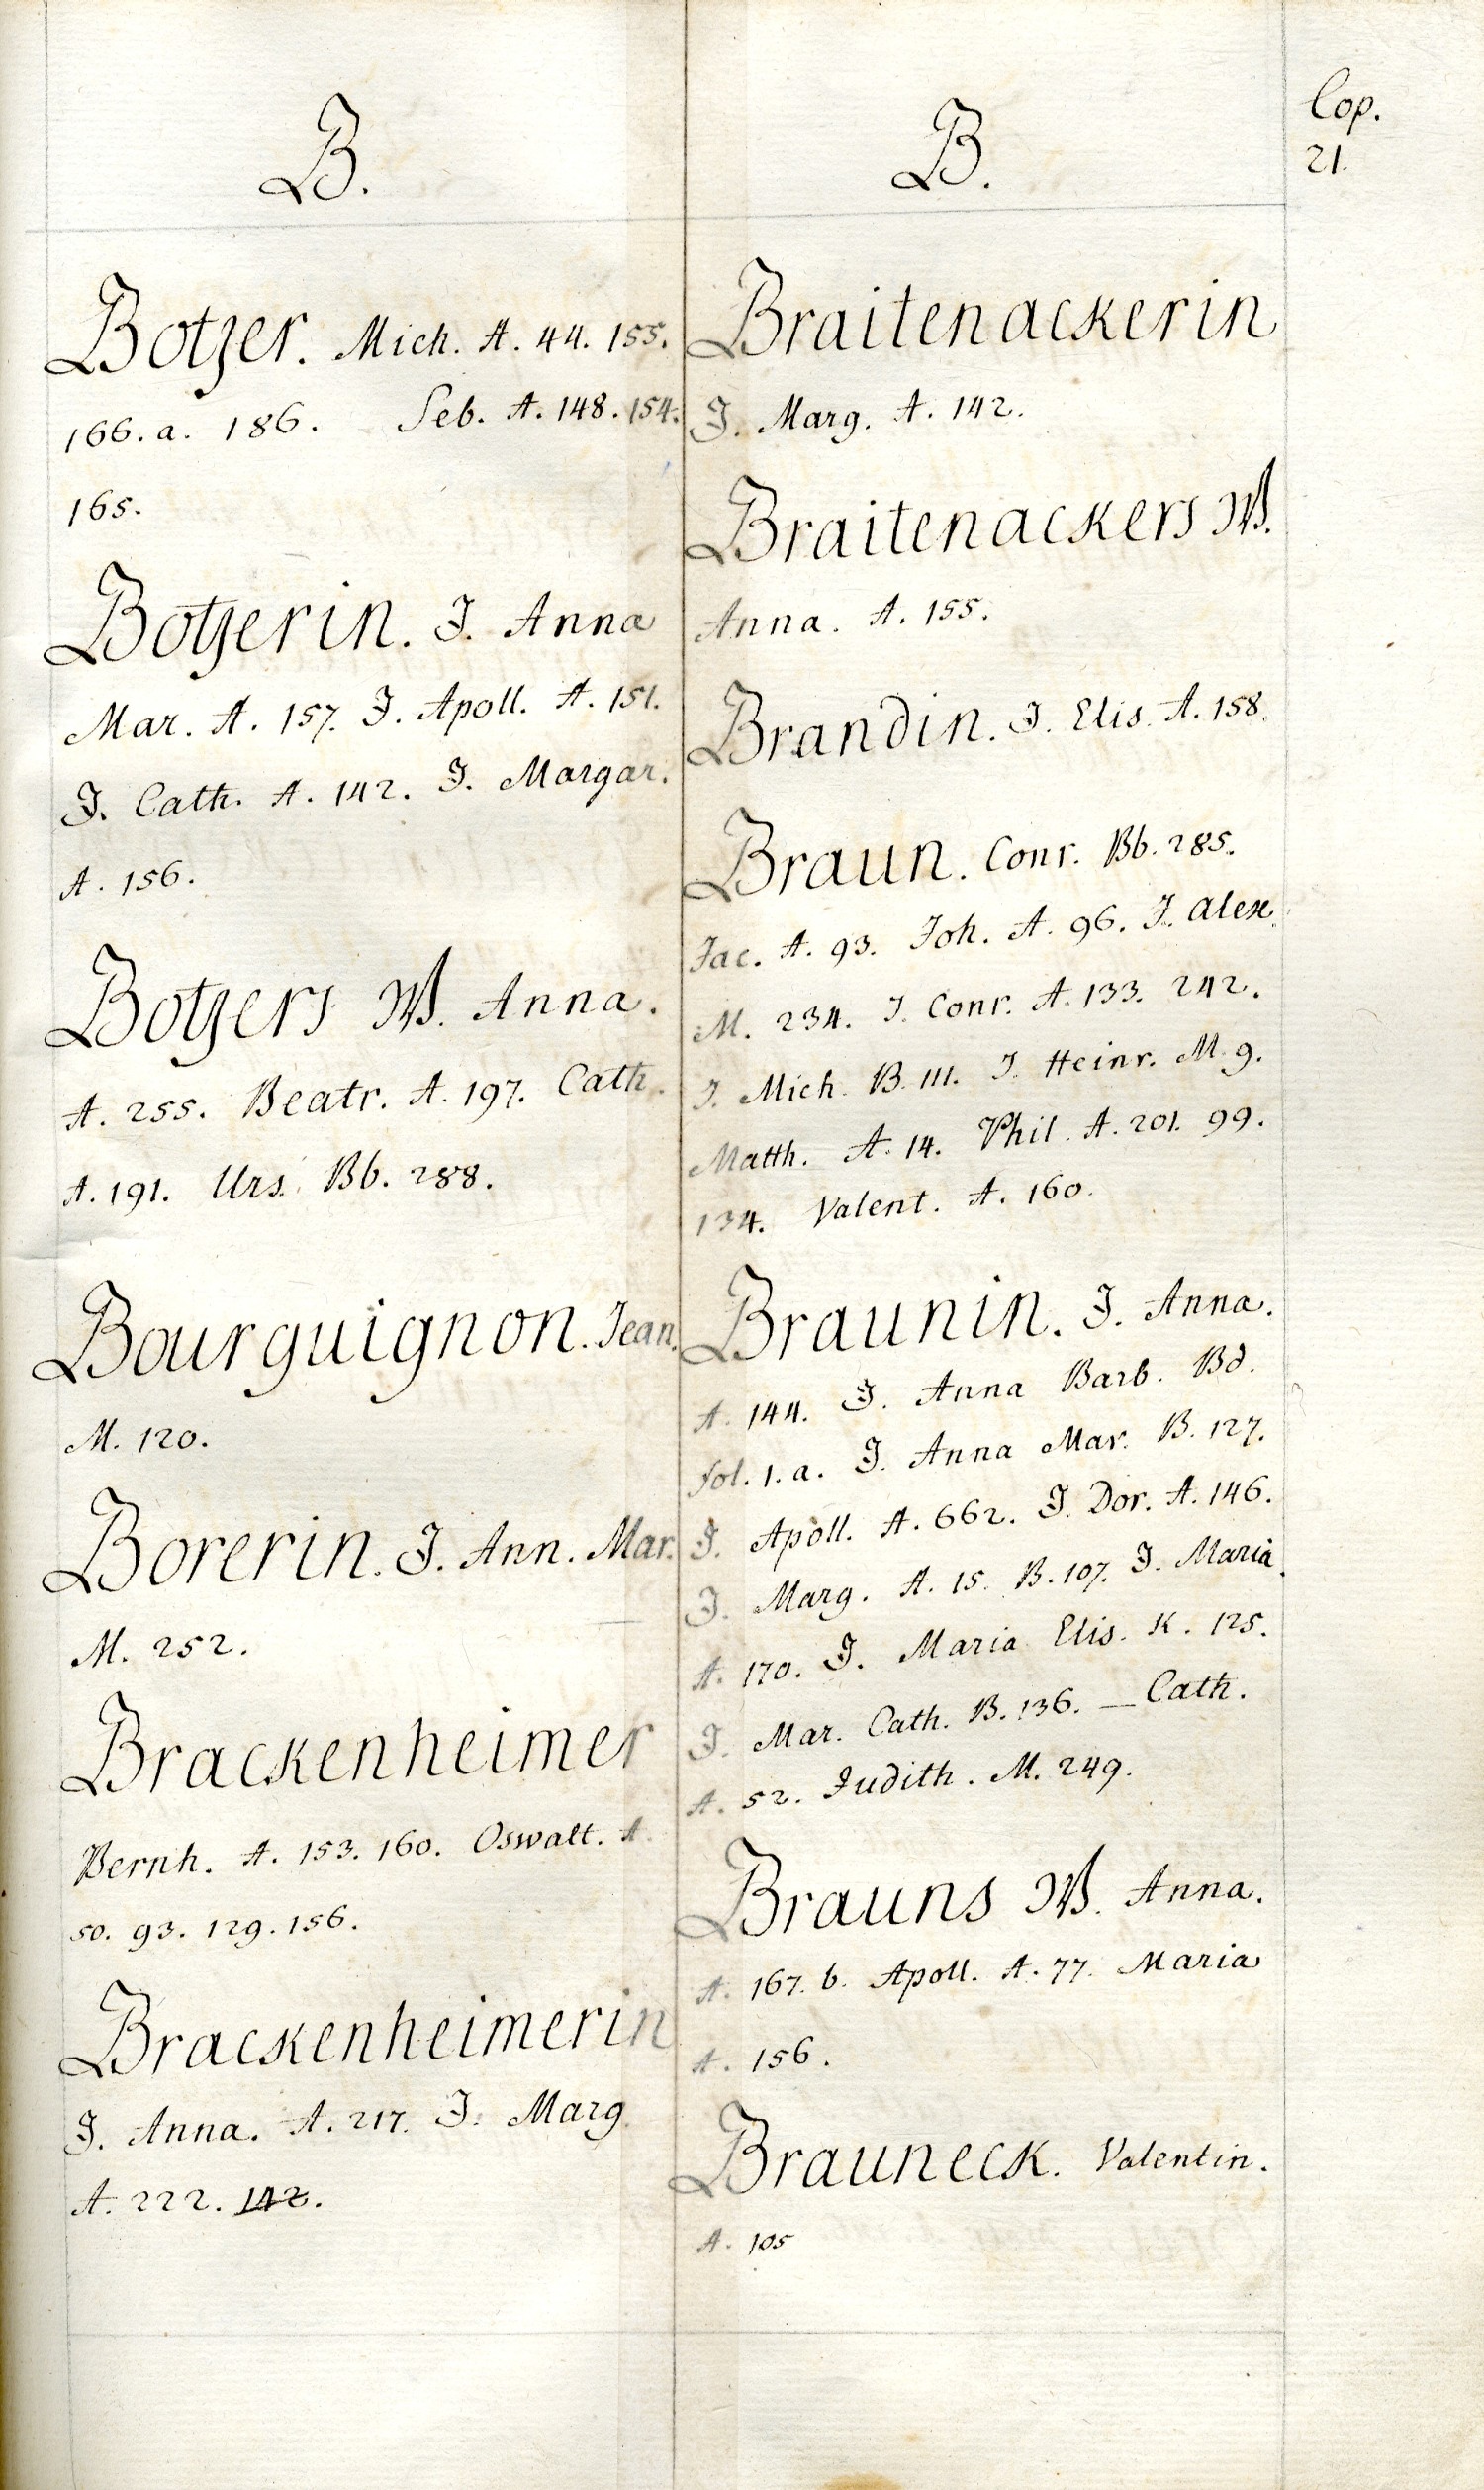 B.
Botzer. Mich. A. 44. 155.
166. a. 186. Seb. A. 148. 154.
165.
Botzerin. J. Anna
Mar. A. 157. J. Apoll. A. 151.
J. Cath. A. 142. J. Margar.
A. 156.
Botzers W. Anna.
A. 255. Beatr. A. 197. Cath.
A. 191. Urs. Bb. 288.
Bourguignon. Jean.
M. 120.
Borerin. J. Ann. Mar.
M. 252.
Brackenheimer
Bernh. A. 153. 160. Oswalt. A.
50. 93. 129. 156.
Brackenheimerin
J. Anna. A. 217. J. Marg.
A. 222. 142.
B.
Braitenackerin
J. Marg. A. 142.
Braitenackers W.
Anna. A. 155.
Brandin. J. Elis. A. 158.
Braun. Conr. Bb. 285.
Jac. A. 93. Joh. A. 96. J. Alex.
M. 234. J. Conr. A. 133. 242.
J. Mich. B. 111. J. Heinr. M. 9.
Matth. A. 14. Phil. A. 201. 99.
134. Valent. A. 160.
Braunin. J. Anna.
A. 144. J. Anna Barb. Bd.
fol. 1. a. J. Anna Mar. B. 127.
J. Apoll. A. 662. J. Dor. A. 146.
J. Marg. A. 15. B. 107. J. Maria.
A. 170. J. Maria Elis. K. 125.
J. Mar. Cath. B. 136. — Cath.
A. 52. Judith. M. 249.
Brauns W. Anna.
A. 167. b. Apoll. A. 77. Maria
A. 156.
Brauneck. Valentin.
A. 105
Cop.
21.